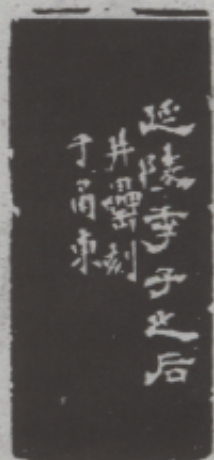 延陵季子之后
井罍刻
于甬東